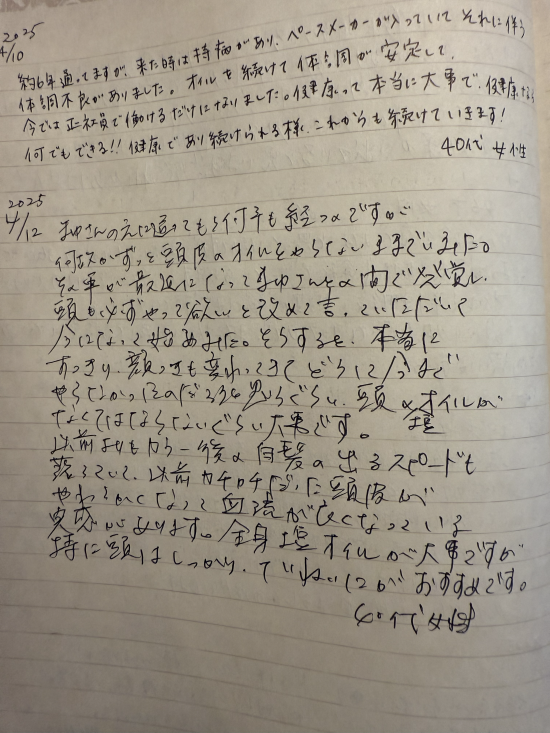 2025
4/10
約6年通ってますが、来た時は持病があり、ペースメーカーが入っていて それに伴う
体調不良がありました。オイルを続けて体調が安定して、
今では正社員で働けるだけになりました。健康って本当に大事で、健康なら
何でもできる!! 健康であり続けられる様、これからも続けていきます!
40代 女性
2025
4/12 まゆさんの元に通ってもう何年も経つのですが
何故かずっと頭皮のオイルをやらないままでいました。
その事が最近になってまゆさんとの間で発覚し、
頭も必ずやって欲しいと改めて言っていただいて
今になって始めました。そうすると、本当に
すっきり、顔つきも変わってきてどうして今まで
やらなかったのだろうと思うぐらい、頭のオイルが
なくてはならないぐらい大事です。塩
以前よりもカラー後の白髪の出るスピードも
落ちていて、以前カチカチだった頭皮が
やわらかくなって血流が良くなっている
実感があります。全身塩オイルが大事ですが
特に頭はしっかり、ていねいにがおすすめです。
40代女性